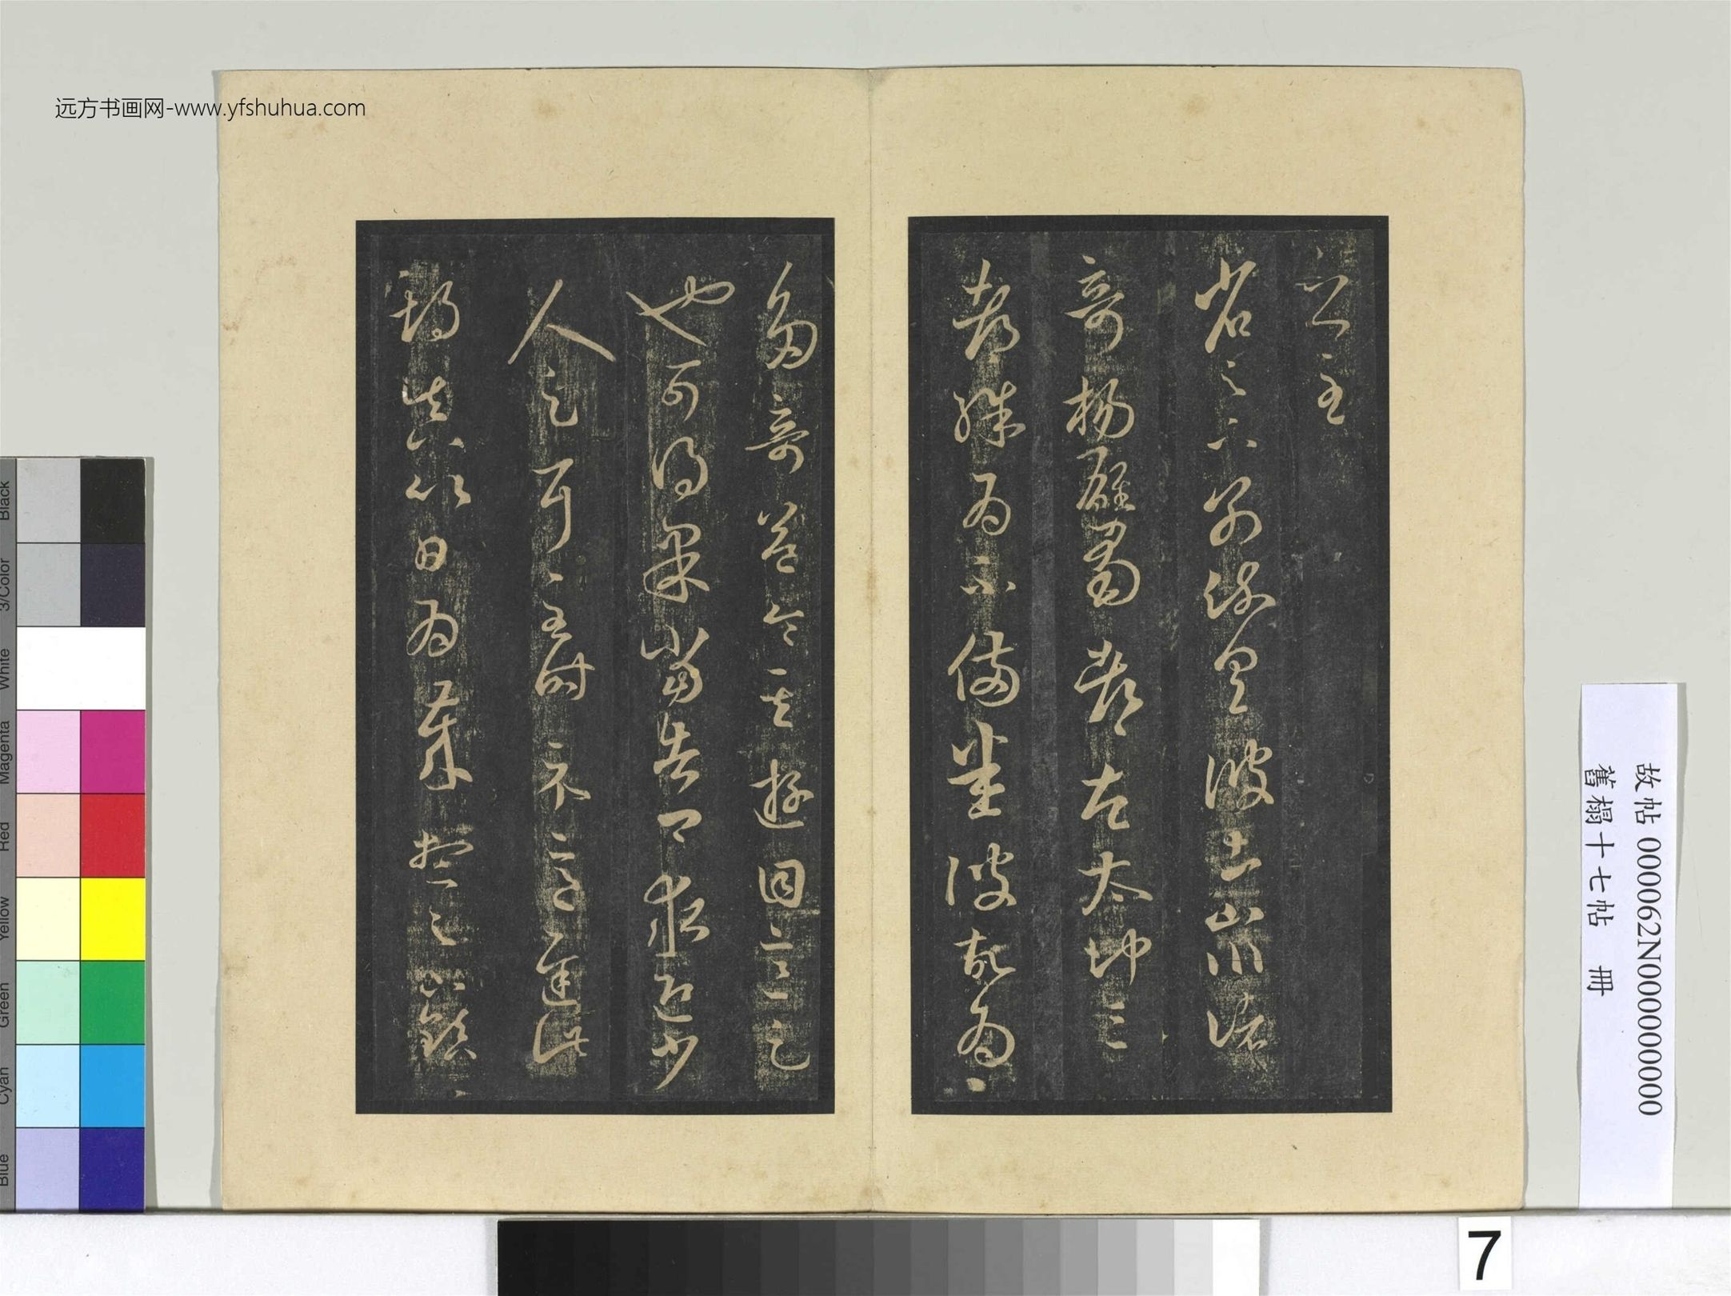 远方书画网-www.yfshuhua.com
之至
省足下別疏具彼土山川諸
奇揚雄蜀都左太沖三
都殊為不備悉彼故為
多奇益令其遊目意足
也可得果當告卿求迎少
人足耳至時示意遲此
期真以日為歲想足下鎮
故帖 000062N000000000
舊榻十七帖 冊
7
Black
3/Color
White
Magenta
Red
Yellow
Green
Cyan
Blue